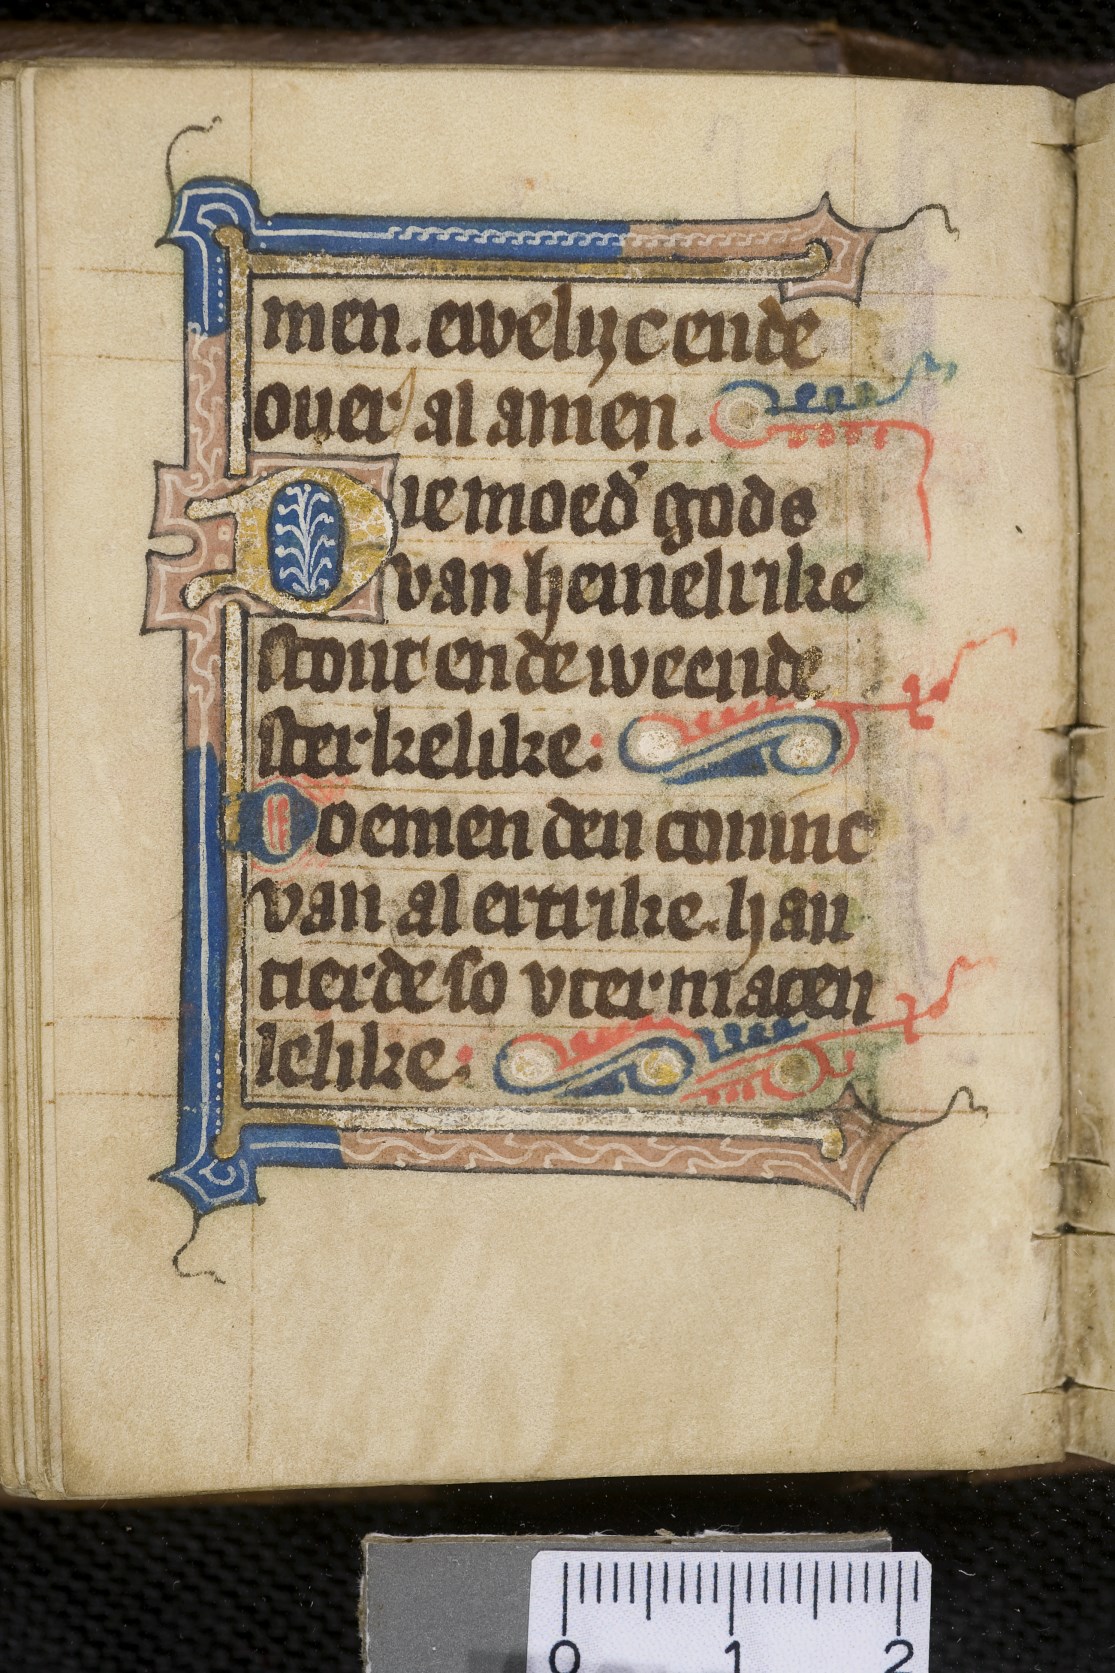 men. ewelyc ende
ouer al amen.
Die moed' gods
van hemelrike
stont ende weende
sterkelike:
Doemen den coninc
van al ertrike. hau
tierde so vtermaten
lelike:
0 1 2